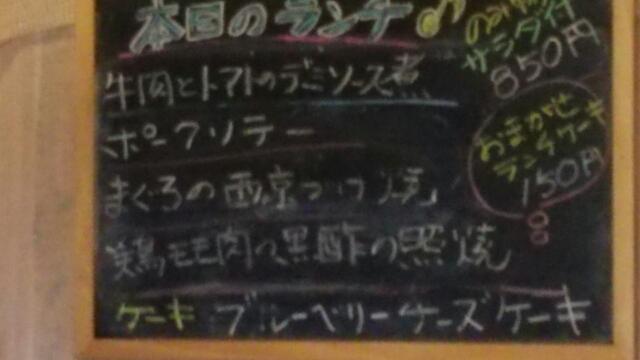 本日のランチ
サラダ付
850円
牛肉とトマトのデミソース煮
おまかせ
ランチケーキ
150円
ポークソテー
まぐろの西京つけ焼
鶏モモ肉の黒酢の照焼
ケーキ ブルーベリーチーズケーキ